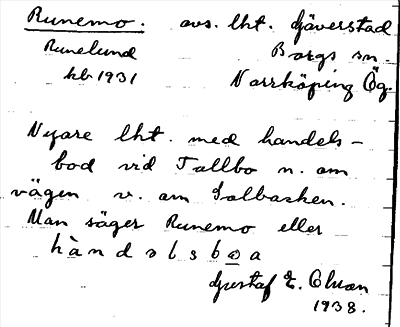 Runemo. avs. lht. Gäverstad
Runelund Borgs sn.
kb 1931 Norrköping Ög.
Nyare lht. med handels-
bod vid Tallbo n. om
vägen v. om Solbacken.
Man säger Runemo eller
hàndəlsbωa
Gustaf E. Ohson
1938.